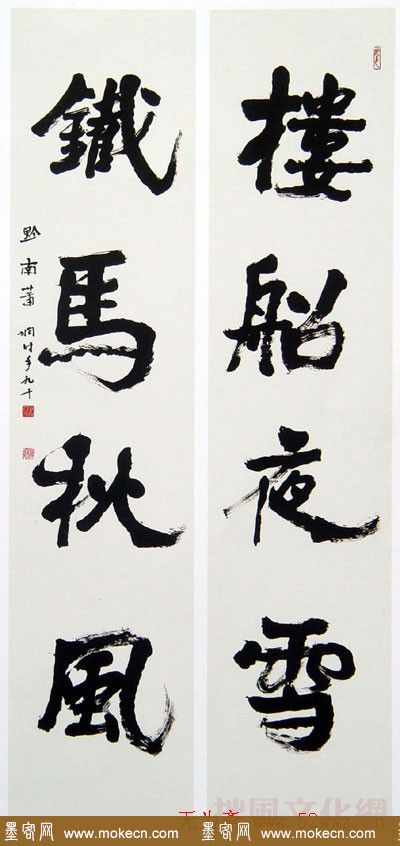 樓船夜雪
鐵馬秋風
黔南蕭娴时年九十
地風文化網
墨客网 www.mokecn.com 墨客网 www.mokecn.com 墨客网